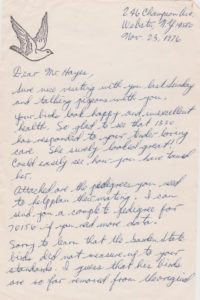 246 Champion Ave.
Webster, N.Y. 14580
Nov. 23, 1976
Dear Mr. Hayes,
Sure nice visiting with you last Sunday
and talking pigeons with you.
Your birds look happy and in excellent
health. So glad to see that 1352
has responded to your tender loving
care. She surely looked great!
Could easily see how you have tamed
her.
Attached are the pedigrees you need
to help plan their mating. I can
send you a complete pedigree for
70156 if you need more data.
Sorry to learn that the Garden State
birds did not measure up to your
standards. I guess that her birds
are so far removed from the original